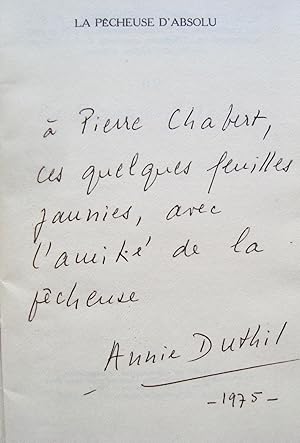 LA PÊCHEUSE D'ABSOLU
à Pierre Chabert,
ces quelques feuilles
jaunies, avec
l'amitié de la
pêcheuse
Annie Duthil
-1975-